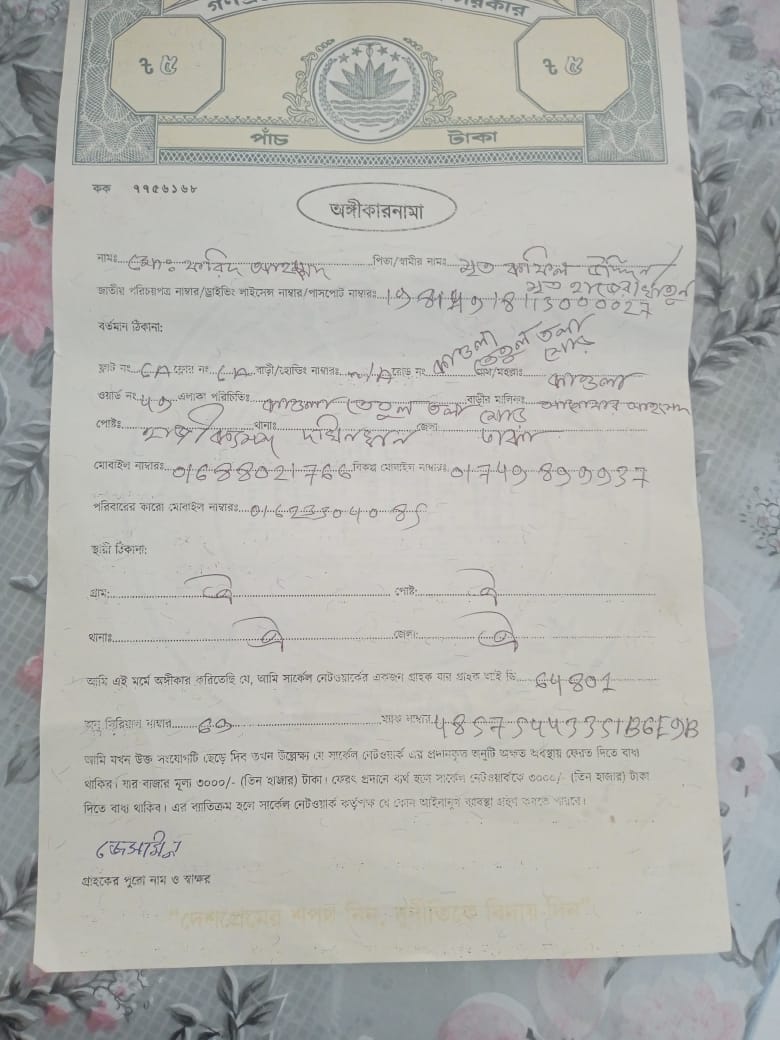 গণপ্রজাতন্ত্রী বাংলাদেশ সরকার
৳ ৫ ৳ ৫
পাঁচ টাকা
কক ৭৭৫৬১৬৮
অঙ্গীকারনামা
নামঃ মোঃ ফরিদ আহম্মদ পিতা/স্বামীর নামঃ মৃত কফিল উদ্দিন/
মৃত হাজেরা খাতুন
জাতীয় পরিচয়পত্র নাম্বার/ড্রাইভিং লাইসেন্স নাম্বার/পাসপোর্ট নাম্বারঃ
বর্তমান ঠিকানা:
কাওলা তেতুল তলা মোড়
ফ্ল্যাট নং ফ্লোর নং বাড়ী/হোল্ডিং নাম্বারঃ N/A রোড নং গ্রাম/মহল্লাঃ কাওলা
ওয়ার্ড নং ৪৯ এলাকা পরিচিতিঃ কাওলা তেতুল তলা মোড় বাড়ীর মালিকঃ আনোয়ার আহমেদ
পোষ্টঃ থানাঃ দক্ষিনখান জেলা ঢাকা
মোবাইল নাম্বারঃ 01688021766 বিকল্প মোবাইল নাম্বারঃ
পরিবারের কারো মোবাইল নাম্বারঃ
স্থায়ী ঠিকানা:
গ্রাম: ঐ পোষ্ট: ঐ
থানাঃ ঐ জেলা: ঐ
আমি এই মর্মে অঙ্গীকার করিতেছি যে, আমি সার্কেল নেটওয়ার্কের একজন গ্রাহক যার গ্রাহক আই ডি 64801
অনু সিরিয়াল নাম্বার ম্যাক নাম্বার 48575443351B6E9B
আমি যখন উক্ত সংযোগটি ছেড়ে দিব তখন উল্লেক্ষ্য যে সার্কেল নেটওয়ার্ক এর প্রদানকৃত অনুটি অক্ষত অবস্থায় ফেরত দিতে বাধ্য
থাকিব। যার বাজার মূল্য ৩০০০/- (তিন হাজার) টাকা। ফেরৎ প্রদানে ব্যর্থ হলে সার্কেল নেটওয়ার্ককে ৩০০০/- (তিন হাজার) টাকা
দিতে বাধ্য থাকিব। এর ব্যতিক্রম হলে সার্কেল নেটওয়ার্ক কর্তৃপক্ষ যে কোন আইনানুগ ব্যবস্থা গ্রহণ করতে পারবে।
জেসমিন
গ্রাহকের পুরো নাম ও স্বাক্ষর
"দেশপ্রেমের শপথ নিন, দুর্নীতিকে বিদায় দিন"